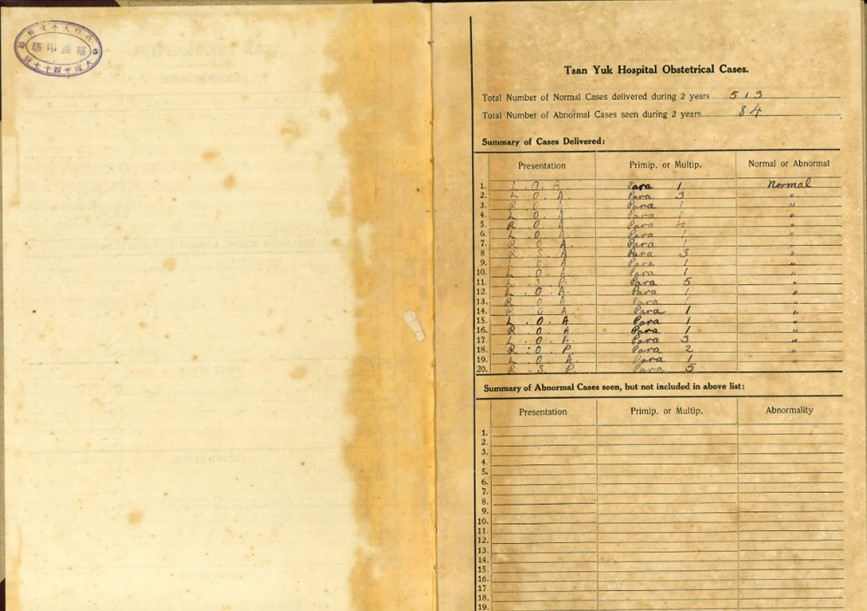 Tsan Yuk Hospital Obstetrical Cases.
Total Number of Normal Cases delivered during 2 years 513
Total Number of Abnormal Cases seen during 2 years 84
Summary of Cases Delivered:
Presentation Primip. or Multip. Normal or Abnormal
1. L. O. A Para 1 Normal
2. L. O. A. Para 3 "
3. Para 1 "
4. L. O. A Para 1 "
5. R. O. A Para 4 "
6. L. O. A Para 1 "
7. R. O. A. Para 1 "
8 R. S. A Para 3 "
9. O A Para 1 "
10. L. O. A Para 1 "
11. L. S. Para 5 "
12. L. O. A. Para 1 "
13. R O A Para 1 "
14. R O A Para 1 "
15. L. O. A Para 1 "
16. R. O A Para 1 "
17. L. O. A. Para 3 "
18. R. O. P. Para 2 "
19. L O. A. Para 1 "
20. R. S. P. Para 5
Summary of Abnormal Cases seen, but not included in above list:
Presentation Primip. or Multip. Abnormality
1.
2.
3.
4.
5.
6.
7.
8.
9.
10.
11.
12.
13.
14.
15.
16.
17
18.
19.